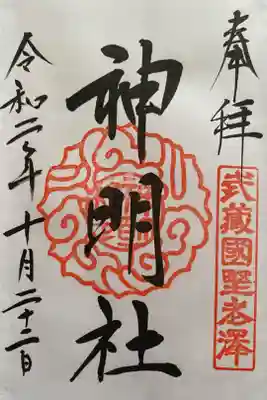 奉拝
武藏國野老澤
神明社
令和二年十月二十二日